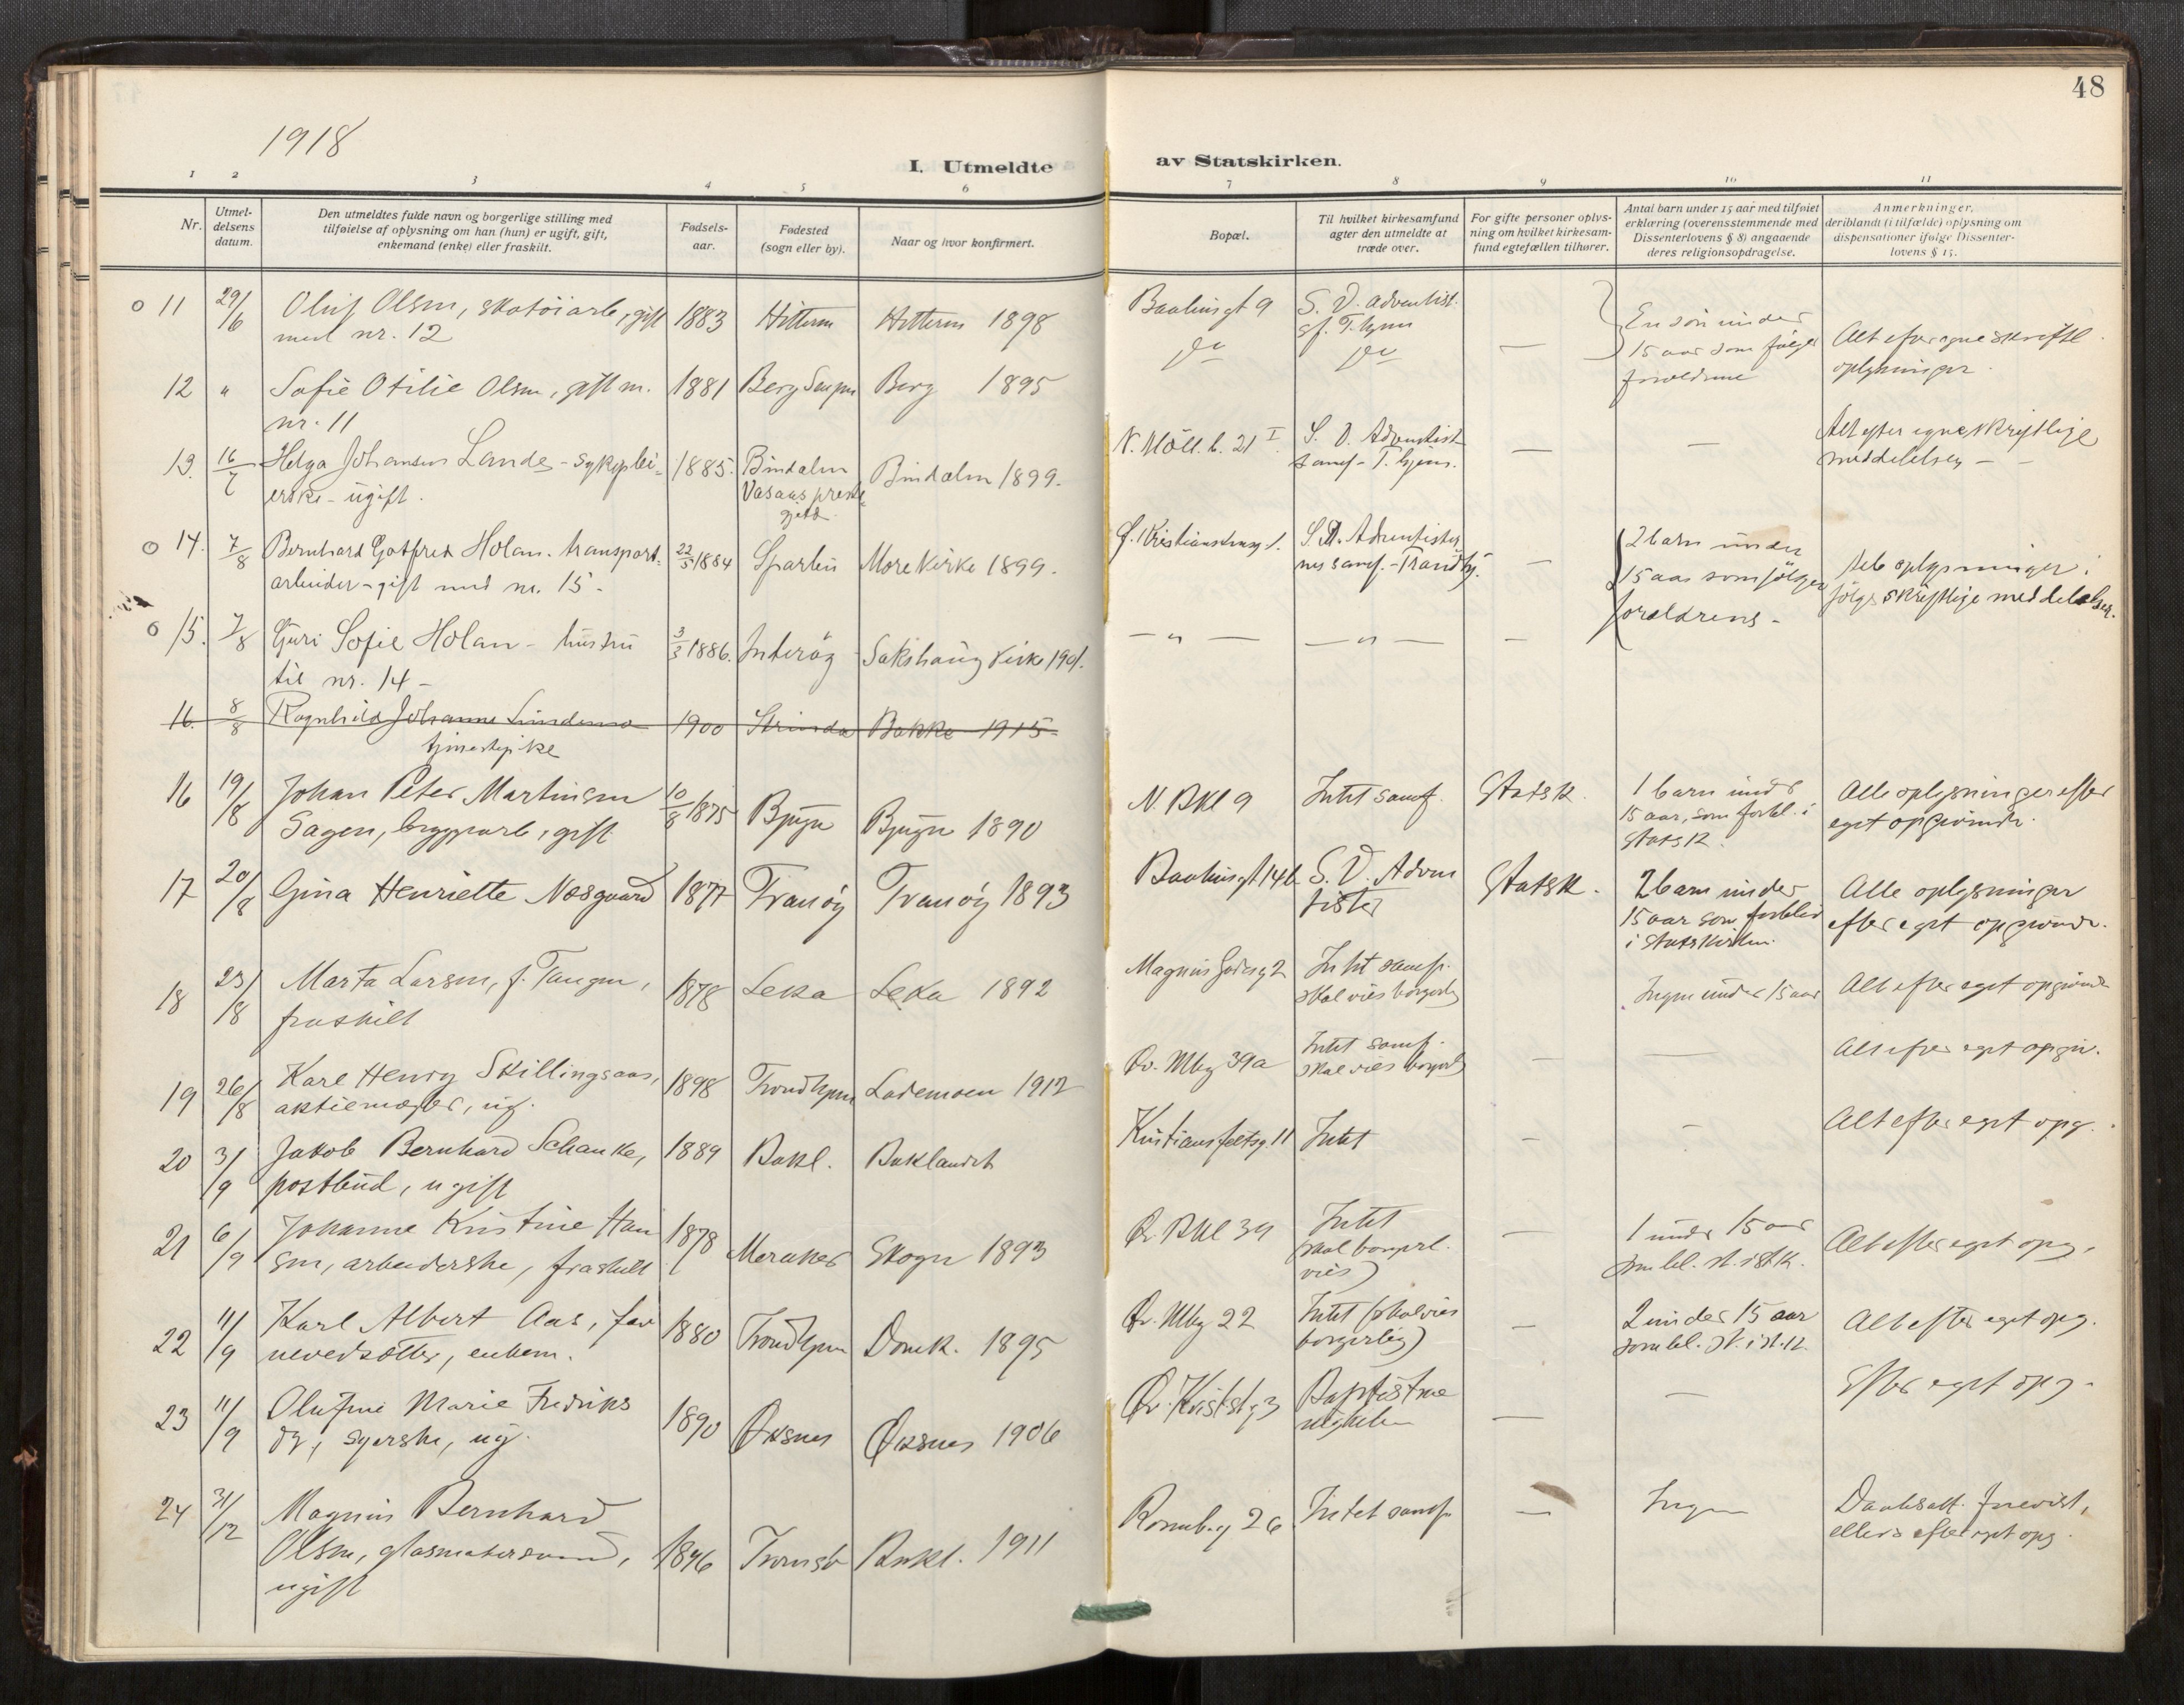 48
1918
I. Utmeldte av Statskirken.
1 2 3 4 5 6 7 8 9 10 11
Nr.
Utmel-
delsens
datum.
Den utmeldtes fulde navn og borgerlige stilling med
tilføielse af oplysning om han (hun) er ugift, gift,
enkemand (enke) eller fraskilt.
Fødsels-
aar.
Fødested
(sogn eller by).
Naar og hvor konfirmert.
Bopæl.
Til hvilket kirkesamfund
agter den utmeldte at
træde over.
For gifte personer oplys-
ning om hvilket kirkesam-
fund egtefællen tilhører.
Antal barn under 15 aar med tilføiet
erklæring (overensstemmende med
Dissenterlovens § 8) angaaende
deres religionsopdragelse.
Anmerkninger,
deriblandt (i tilfælde) oplysning om
dispensationer ifølge Dissenter-
lovens § 15.
11 29/6 Oluf Olsen, skotöiarb, gift 1883 Hitteren Hitteren 1898 S. D. Adventist.
med nr. 12
En sön under
15 aar som følger
forældrene
Alt efter egne skriftl.
oplysninger.
12 " Sofie Otilie Olsen, gift m. 1881 Berg Senjen Berg 1895
nr. 11
13. 16/7 Helga Johansen Lande - sykeplei- 1885. Bindalen Bindalen 1899. N. Möll. b. 21 I. S. D. Adventist
erske - ugift. Vasaas preste-
gjeld
samf - T. hjem.
— Alt efter egne skriftlige
meddelelser —
14. 7/8 Bernhard Gotfred Holan. transport- 22/5 1884 Sparbu More kirke 1899. S.D. Adventister
arbeider - gift med nr. 15 -
nes samf. - Trondhj.
2 barn under
15 aar som følger
foreldrene -
Alle oplysninger i
følge skriftlige meddelelser.
15. 7/8 Guri Sofie Holan - hustru 3/3 1886. Inderøy Sakshaug Kirke 1901. — " — — " — —
til nr. 14 -
16. 8/8 Ragnhild Johanne Lindemo 1900 Strinda Bakke 1915-
tjenestepike
16 19/8 Johan Peter Martinsen 10/8 1875 Bjugn Bjugn 1890 N. Bkl 9 Intet samf. Statsk. 1 barn under
Sagen, bryggearb, gift
15 aar, som forbl. i
Statsk.
Alle oplysninger efter
eget opgivende.
17 20/8 Gina Henriette Nesgaard 1877 Tranöy Tranöy 1893 S. D. Adven Statsk.
tister
2 barn under
15 aar som forbliv
i Statskirken.
Alle oplysninger
efter eget opgivende.
18 23/8 Marta Larsen, f. Tangen, 1878 Leka Leka 1892 Magnus Godesg 2 Intet samf.
fraskilt
skal vies borgerlig
Ingen under 15 aar Alt efter eget opgivende
19 26/8 Karl Henry Skillingsaas, 1898 Trondhjem Lademoen 1912 Øv. Mbg 39a Intet samf.
aktiemægler, ug.
skal vies borgerl.
— — Alt efter eget opgiv.
20 3/9 Jakob Bernhard Schanke, 1889 Bakl. Baklandet Kristiansfeltsg. 11 Intet — — Alt efter eget opg.
postbud, ugift
21 6/9 Johanne Kristine Han 1878 Meraker Skogn 1893 Øv Bkl 39 Intet
sen, arbeiderske, fraskilt
(skal borgerl.
vies)
— 1 under 15 aar
som bl. st. i st.k.
Alt efter eget opg.
22 11/9 Karl Albert Aas, far 1880 Trondhjem Domk. 1895 Øv. Mbg 22 Intet (skal vies
borgerlig)
— 2 under 15 aar
Alt efter eget opg.
23 11/9 Olufine Marie Fredriks 1890 Øksnes Øksnes 1906 Øv. Kristst g 3
dr, syerske, ug.
— — Efter eget opg.
24 31/12 Magnus Bernhard
Olsen, glasmestersvend, 1896 Tromsö Bakl. 1911 Rosenb.g 26 Intet samf. — Ingen
ugift
Daabsatt. forevist,
ellers efter eget opg.